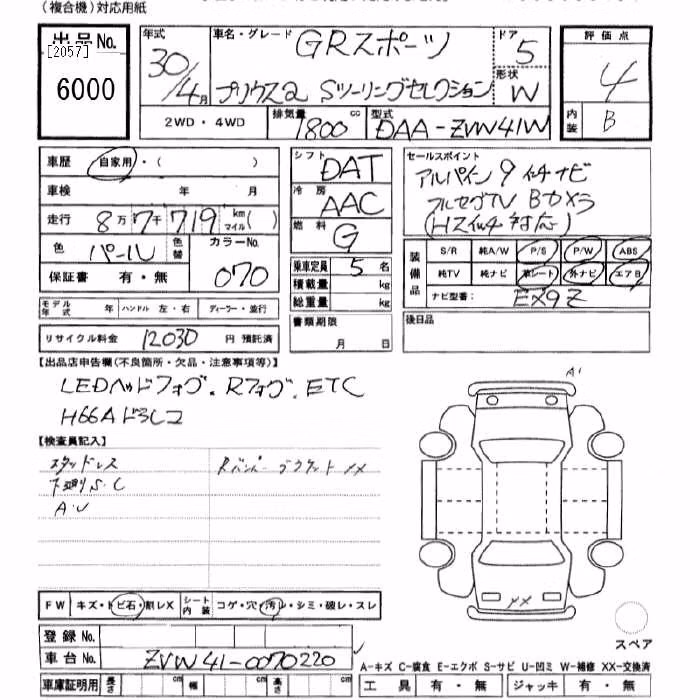 (複合機)対応用紙
出品No. 年式 車名・グレード GRスポーツ ドア 5 評価点
[2057]
6000 30/4月 プリウスα Sツーリングセレクション 形状 W 4
2WD・4WD 排気量 1800 cc 型式 DAA-ZVW41W 内装 B
車歴 自家用・( ) シフト DAT セールスポイント
車検 年 月 冷房 AAC アルパイン9インチナビ
走行 8万7千719 km マイル( ) 燃料 G フルセグTV Bカメラ
色 パール 色替 カラーNo. 070 (Hスイッチ対応)
保証書 有・無 乗車定員 5名 装備品 S/R 純A/W P/S P/W ABS
積載量 kg 純TV 純ナビ 革シート 外ナビ エアB
モデル年式 年 ハンドル 左・右 ディーラー・並行 総重量 kg ナビ型番: EX9Z
リサイクル料金 12030 円 預託済 書類期限 月 日 後日品
【出品店申告欄(不良箇所・欠品・注意事項等)】
LEDヘッドフォグ. Rフォグ. ETC
H66Aドラレコ
A1
【検査員記入】
スタッドレス Rバンパーブラケット XX
下廻りS.C
A.U
XX
FW キズ・ト ビ石・割レX シート内装 コゲ・穴・汚レ・シミ・破レ・スレ
登録No.
スペア
車台No. ZVW41-0070220
A-キズ C-腐食 E-エクボ S-サビ U-凹ミ W-補修 XX-交換済
車庫証明用 長さ cm 幅 cm 高さ cm 工具 有・無 ジャッキ 有・無